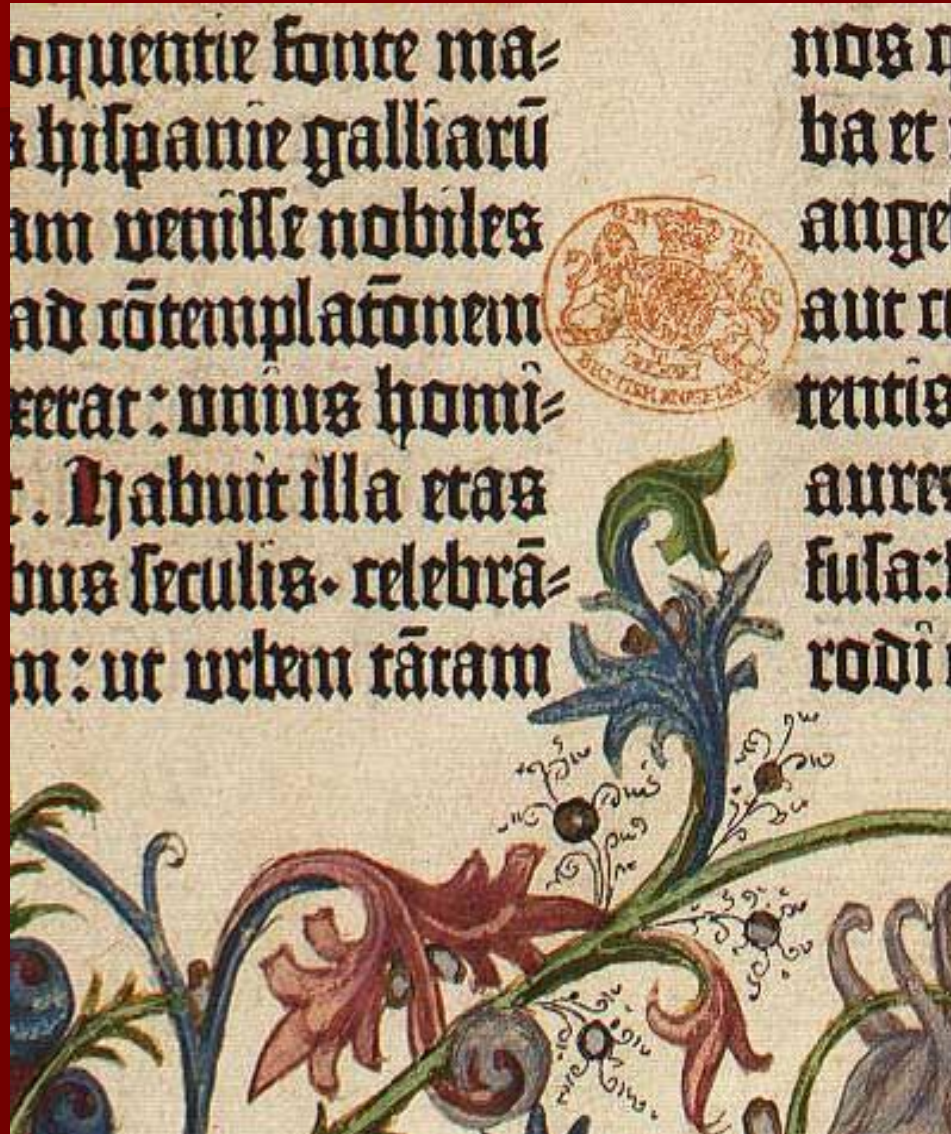 oquentie fonte ma=
s hiſpanie galliarū
am veniſſe nobiles
ad cōtemplatōnem
xerat: vnius homi=
t. Habuit illa etas
bus ſeculis. celebrā=
m: ut vrbem tātam
nos
ba et
ange
aut c
tentis
aure
fuſa:
rodi
BRITISH MUSEUM